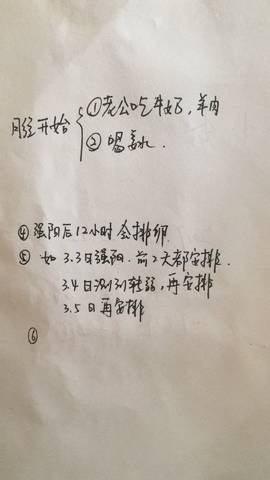 月经开始
①老公吃牛奶，羊肉
②喝姜水.
④强阳后12小时会排卵
⑤如3.3日强阳.前2天都安排.
3.4日测到转弱，再安排
3.5日再安排
⑥